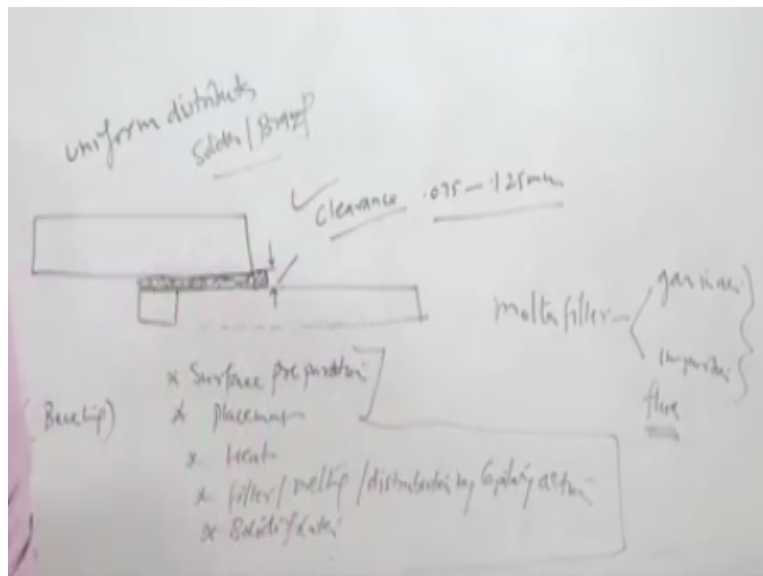 uniform distribute
Solder/Brazg
✓ Clearance .075 – .125mm
molten filler – gasses
impurities
flux
× Surface preparation
× Placement
× Heat
× filler/melting/distribution by Capilary action
× Solidification